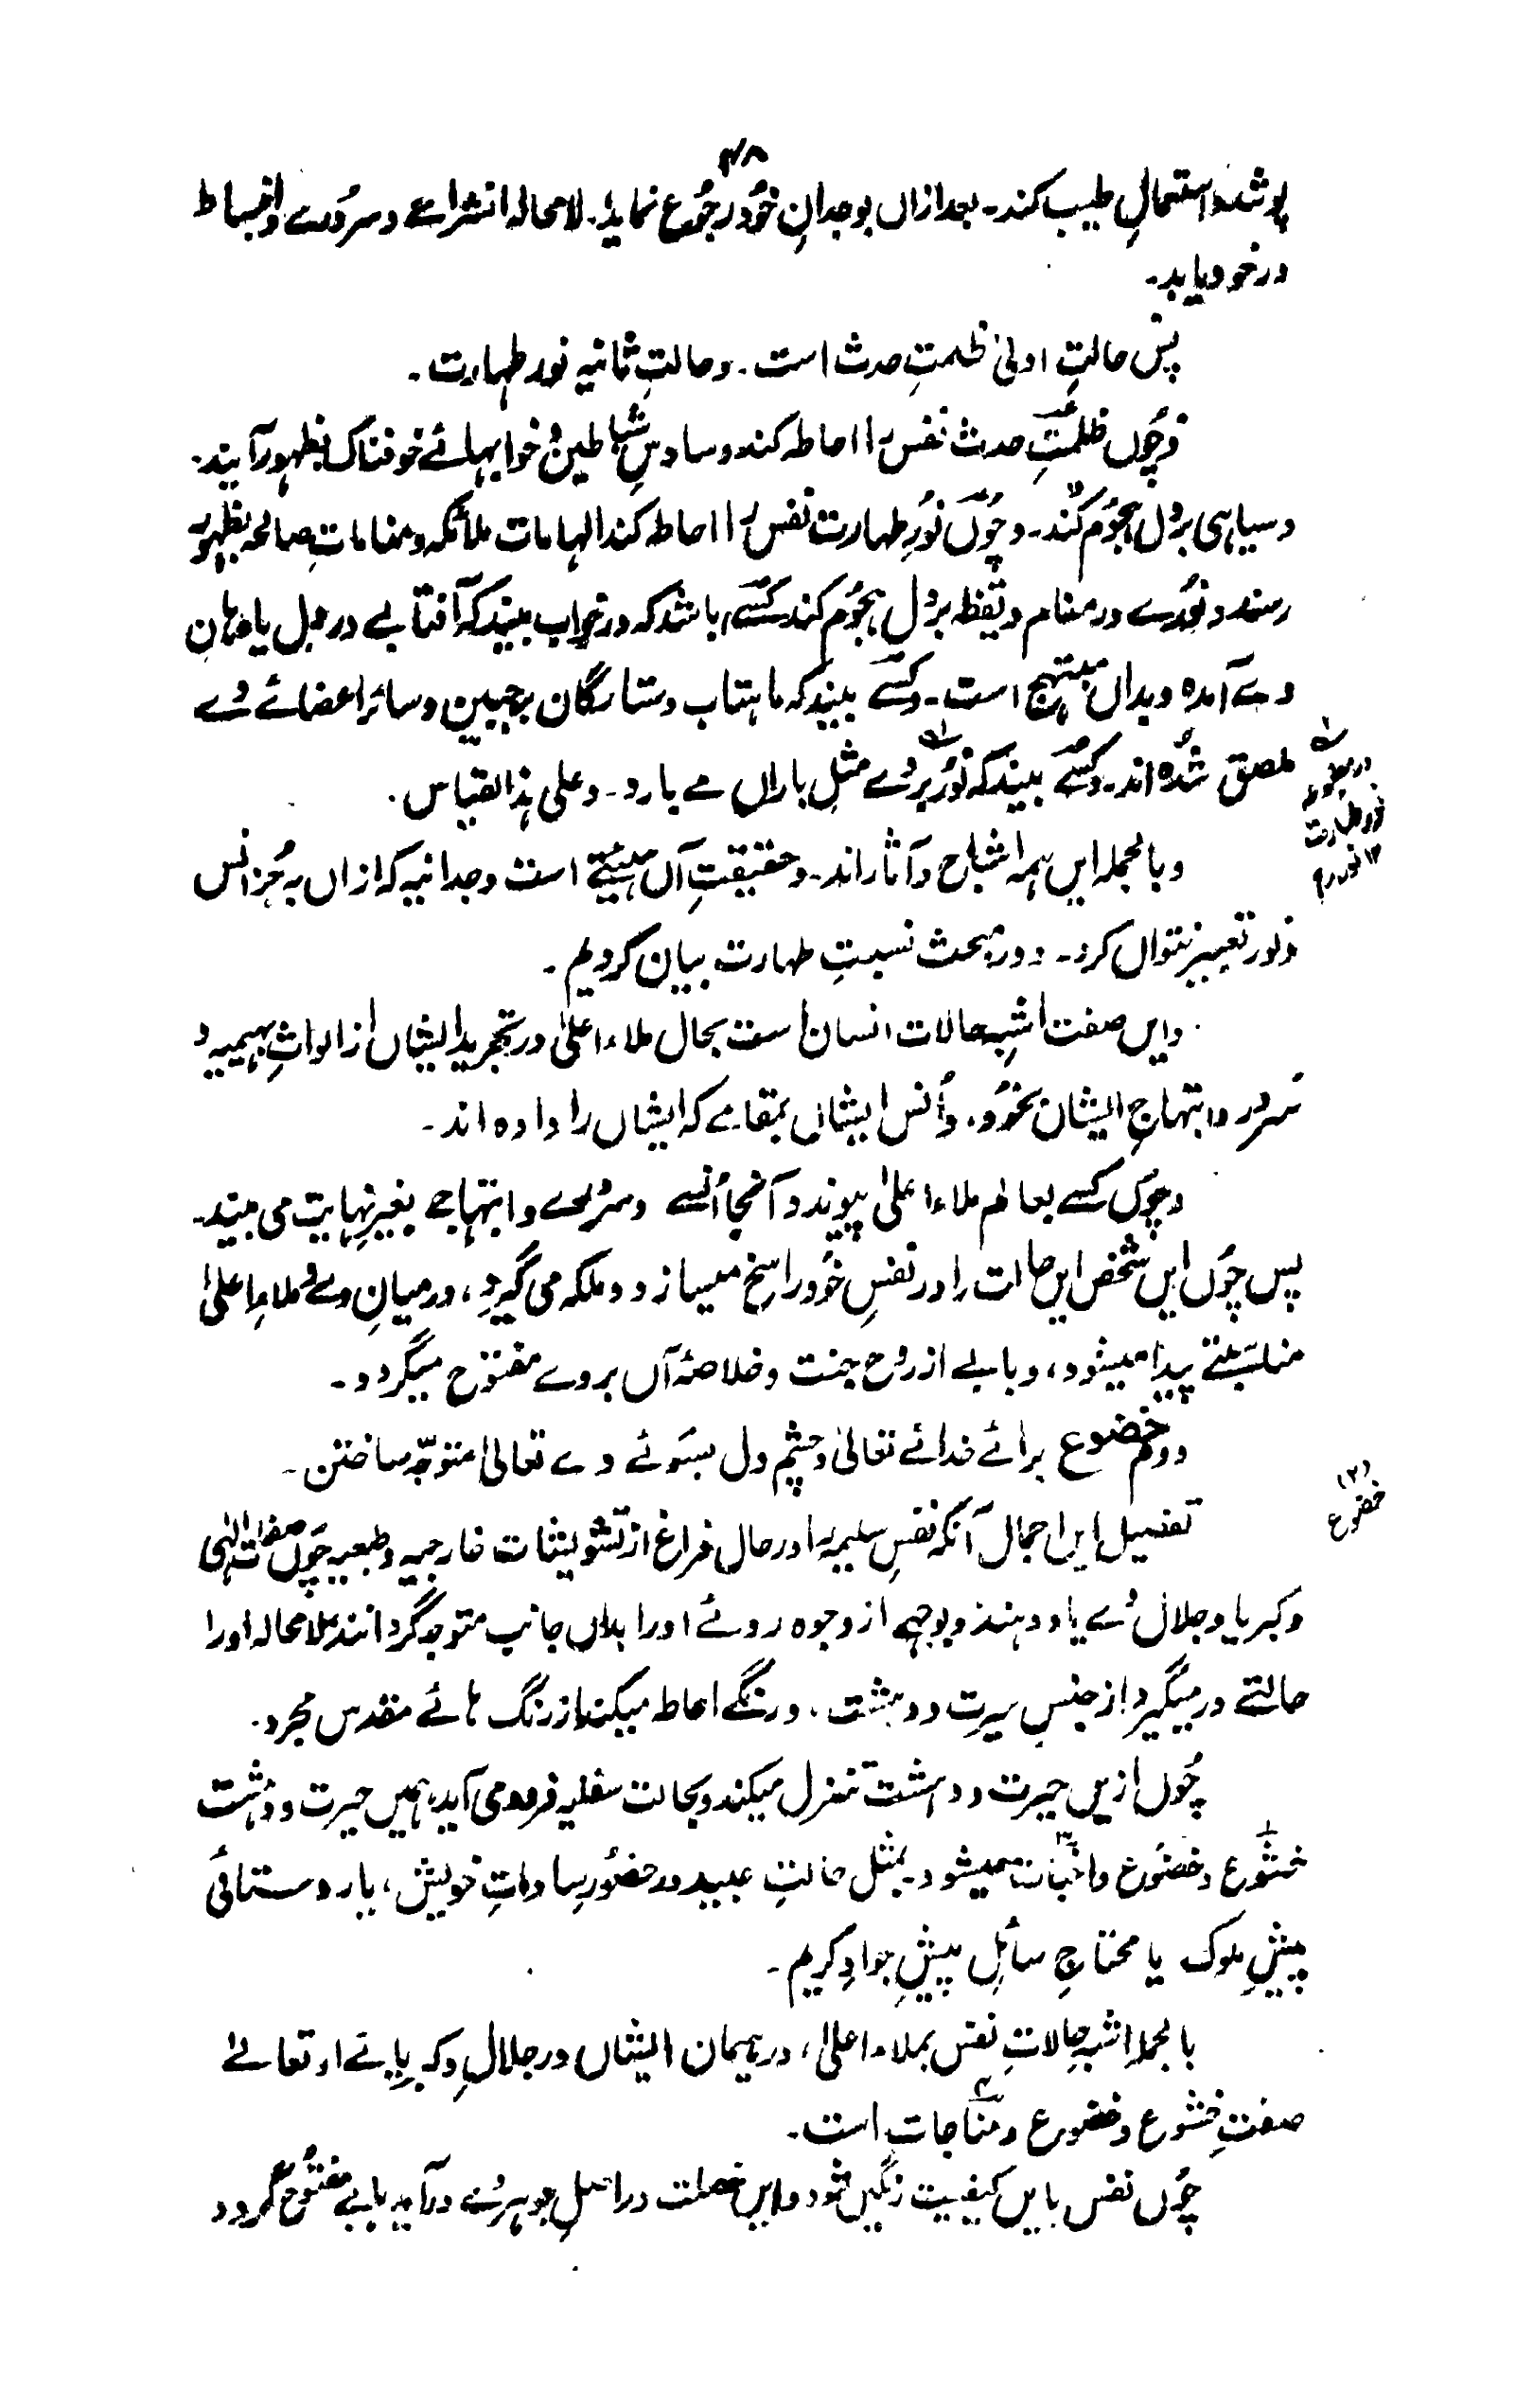 ۴۸
پوشد و استعمالِ طیب کند۔ بعد ازاں بوجدانِ خود رجوع نماید۔ لا محالہ انشراحے و سرورے و انبساط
در خود یابد۔
پس حالتِ اولیٰ ظلمتِ حدث است۔ و حالتِ ثانیہ نور طہارت۔
و چُوں ظلمتِ حدث نفس را احاطہ کند وساوسِ شیاطین و خوابہائے خوفناک بظہور آیند۔
و سیاہی بر دل ہجوم کند۔ و چُوں نُورِ طہارت نفس را احاطہ کند الہامات ملائکہ و منامات صالحہ بظہور
رسند و نُورے در منام و یقظہ بر دل ہجوم کند کسے باشد کہ در خواب بیند کہ آفتابے در دل یا دہانِ
وے آمدہ و بداں مبتہج است۔ و کسے بیند کہ ماہتاب و ستارگان بر جبین و سائر اعضائے وے
ملصق شدہ اند۔ و کسے بیند کہ نُور بر وے مثلِ باراں مے بارد۔ و علی ہذا القیاس۔
و بالجملہ ایں ہمہ اشباح و آثار اند۔ و حقیقتِ آں ہیئتے است وجدانیہ کہ ازاں بہ جُز انس
و نور تعبیر نتواں کرد۔ و در مبحث نسبتِ طہارت بیان کردیم۔
و ایں صفت اشبہ حالات انسان است بحال ملاء اعلیٰ در تجرید ایشاں از الواثِ بہیمیہ و
سُرور و ابتہاجِ ایشان بخود، و اُنس ایشاں بمقامے کہ ایشاں را دادہ اند۔
و چُوں کسے بعالم ملاء اعلیٰ پیوندد آنجا اُنسے و سُرورے و ابتہاجے بغیر نہایت می بیند۔
پس چُوں ایں شخص ایں حالت را در نفسِ خود راسخ میسازد و ملکہ می گیرد، درمیانِ وے و ملاءِ اعلیٰ
مناسبتے پیدا میشود، و بابے از رُوحِ جنت و خلاصۂ آں بروے مفتوح میگردد۔
دوم خضوع برائے خدائے تعالیٰ و چشم دل بسوئے وے تعالیٰ متوجّہ ساختن۔
تفصیل ایں اجمال آنکہ نفسِ سلیمہ را در حال فراغ از تشویشات خارجیہ و طبعیہ چُوں صفات الٰہی
و کبریا و جلال وے یاد دہند و بوجہے از وجوہ روئے او را بداں جانب متوجہ گردانند لا محالہ او را
حالتے در میگیرد از جنس حیرت و دہشت، و رنگے احاطہ میکند از رنگ ہائے مقدس مجرد۔
چُوں ازیں حیرت و دہشت تنزل میکند و بحالت سفلیہ فرود می آید، ہمیں حیرت و دہشت
خشُوع و خضُوع و اخبات میشود۔ بمثل حالتِ عبید در حضُورِ ساداتِ خویش، یا روستائی
پیشِ ملوک یا محتاجِ سائل پیشِ جوادِ کریم۔
بالجملہ اشبہ حالاتِ نفس بملاء اعلیٰ، در ہیمان ایشاں در جلال و کبریائے او تعالےٰ
صفتِ خشوع و خضوع و مناجات است۔
چُوں نفس بایں کیفیت رنگیں شود و ایں خصلت در اصلِ جوہرِ وے درآید بابے مفتُوح گردد
نور طہارت
(۲)
خضوع